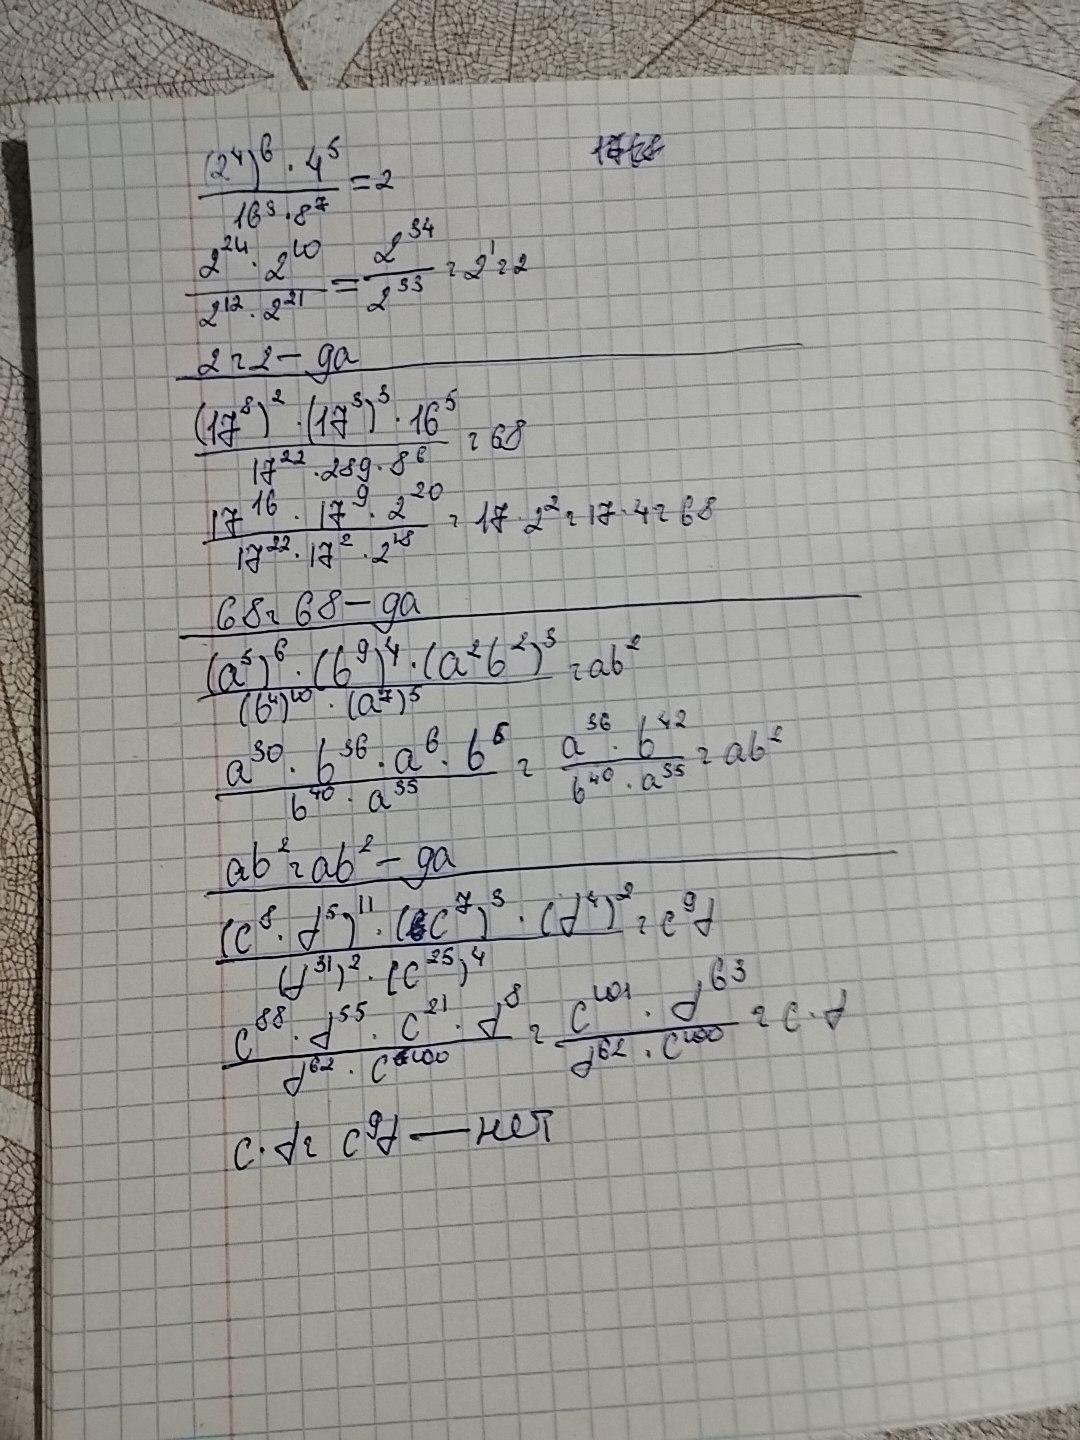 (2⁴)⁶ · 4⁵ / 16³ · 8⁷ = 2
2²⁴ · 2¹⁰ / 2¹² · 2²¹ = 2³⁴ / 2³³ = 2¹ = 2
2 = 2 — да
(17⁸)² · (17³)³ · 16⁵ / 17²² · 289 · 8⁶ = 68
17¹⁶ · 17⁹ · 2²⁰ / 17²² · 17² · 2¹⁸ = 17 · 2² = 17 · 4 = 68
68 = 68 — да
(a⁵)⁶ · (b⁹)⁴ · (a²b²)³ / (b⁴)¹⁰ · (a⁷)⁵ = ab²
a³⁰ · b³⁶ · a⁶ · b⁶ / b⁴⁰ · a³⁵ = a³⁶ · b⁴² / b⁴⁰ · a³⁵ = ab²
ab² = ab² — да
(c⁸ · d⁵)¹¹ · (c⁷)³ · (d⁴)² / (d³¹)² · (c²⁵)⁴ = c⁹d
c⁸⁸ · d⁵⁵ · c²¹ · d⁸ / d⁶² · c¹⁰⁰ = c¹⁰¹ · d⁶³ / d⁶² · c¹⁰⁰ = c · d
c · d = c⁹d — нет